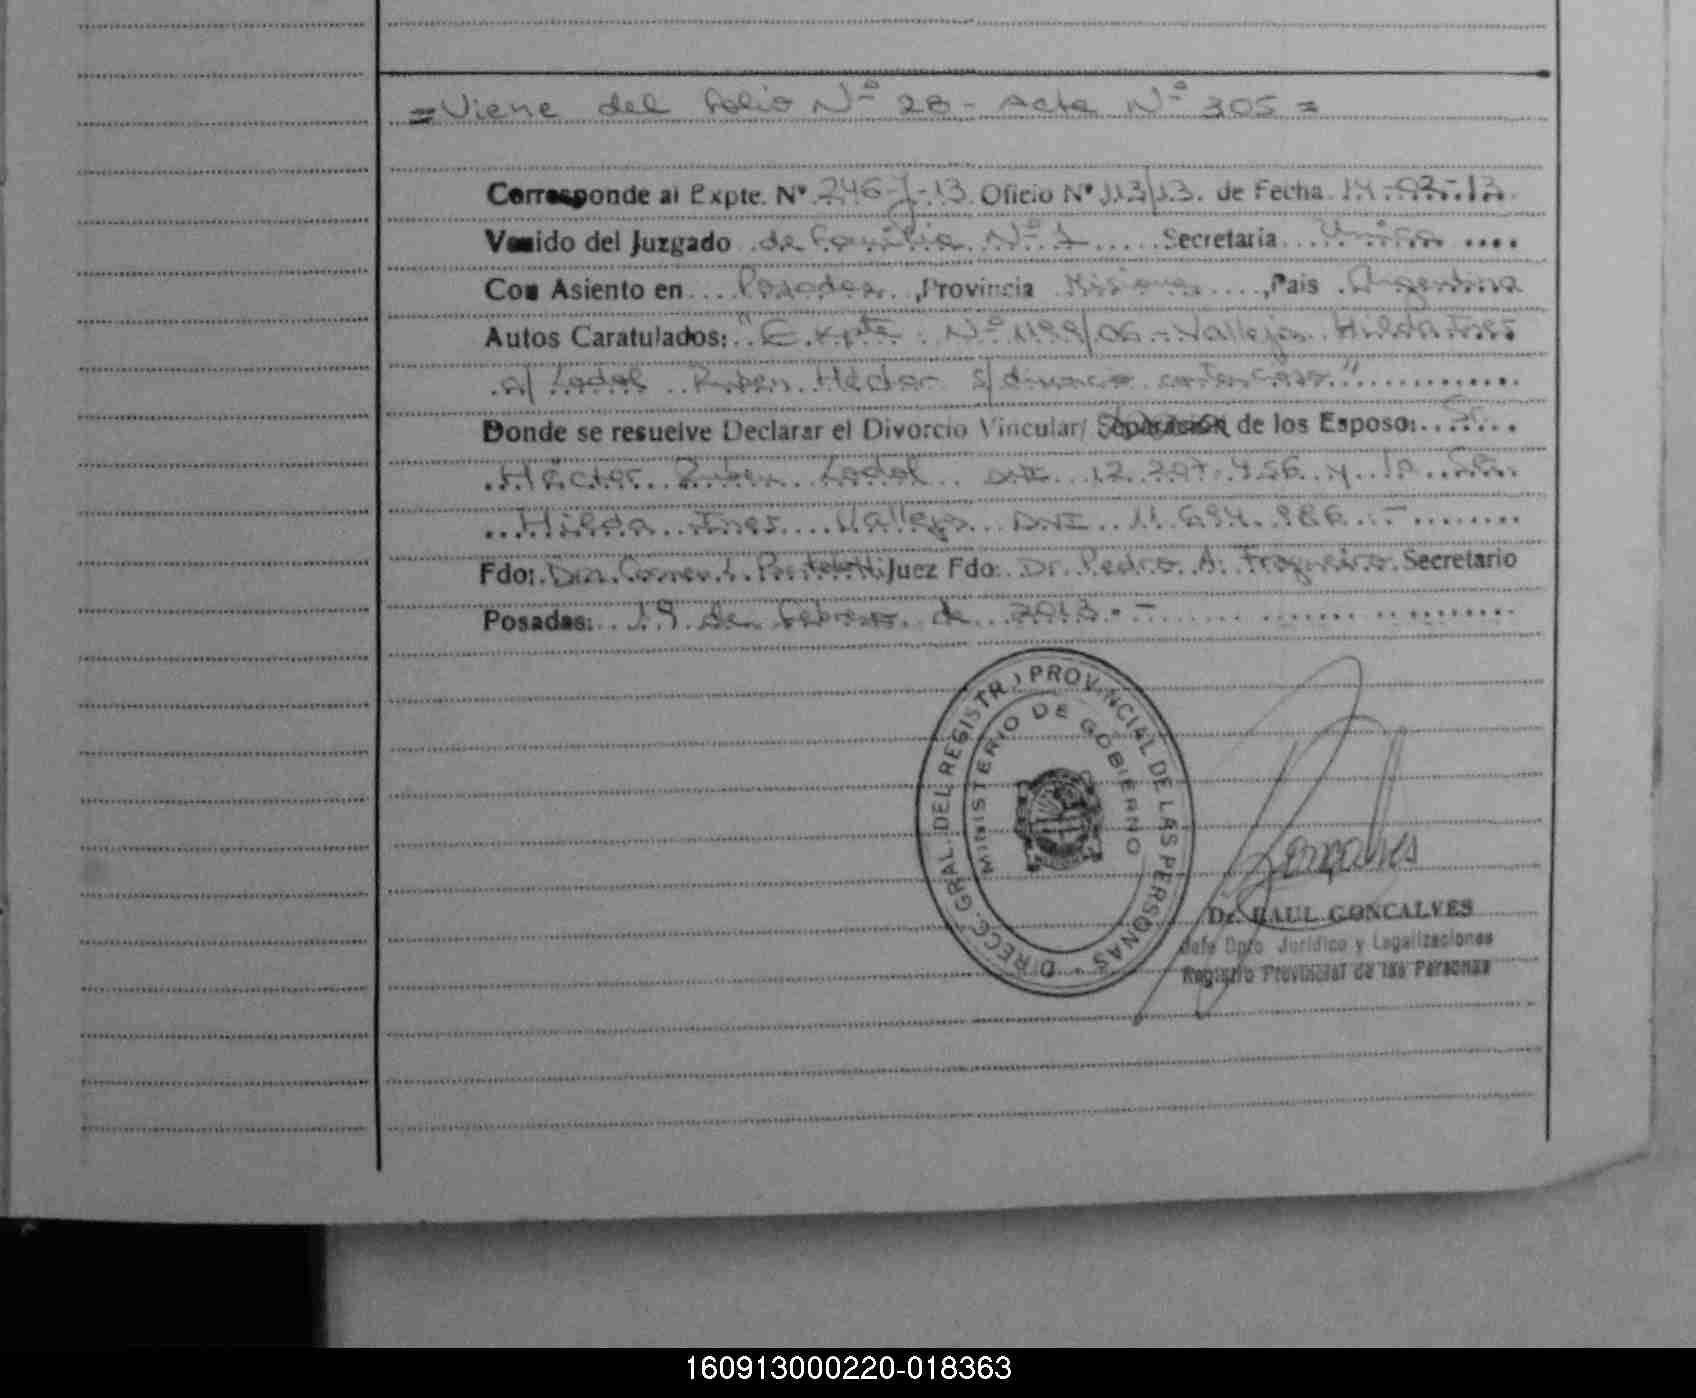 = Viene del folio Nº 28 - Acta Nº 305 =
Corresponde al Expte. Nº 246-J-13 Oficio Nº 113/13. de Fecha 14-03-13.
Venido del Juzgado de Familia Nº 1 Secretaria Unica
Con Asiento en Posadas, Provincia Misiones, Pais Argentina
Autos Caratulados: "Expte. Nº 1199/06 - Vallejos Hilda Ines
c/ Ruben Hector s/ divorcio contencioso"
Donde se resuelve Declarar el Divorcio Vincular/ Separación de los Esposo: Sr.
Héctor Ruben DNI 12.207.456 y la Sra.
Hilda Ines Vallejos DNI 11.694.986.-
Fdo: Dra. Carmen Juez Fdo: Dr. Pedro A. Secretario
Posadas: 19 de febrero de 2013.-
DIRECC. GRAL. DEL REGISTRO PROVINCIAL DE LAS PERSONAS
MINISTERIO DE GOBIERNO
Goncalves
Dr. RAUL GONCALVES
Jefe Dpto Jurídico y Legalizaciones
Registro Provincial de las Personas
160913000220-018363